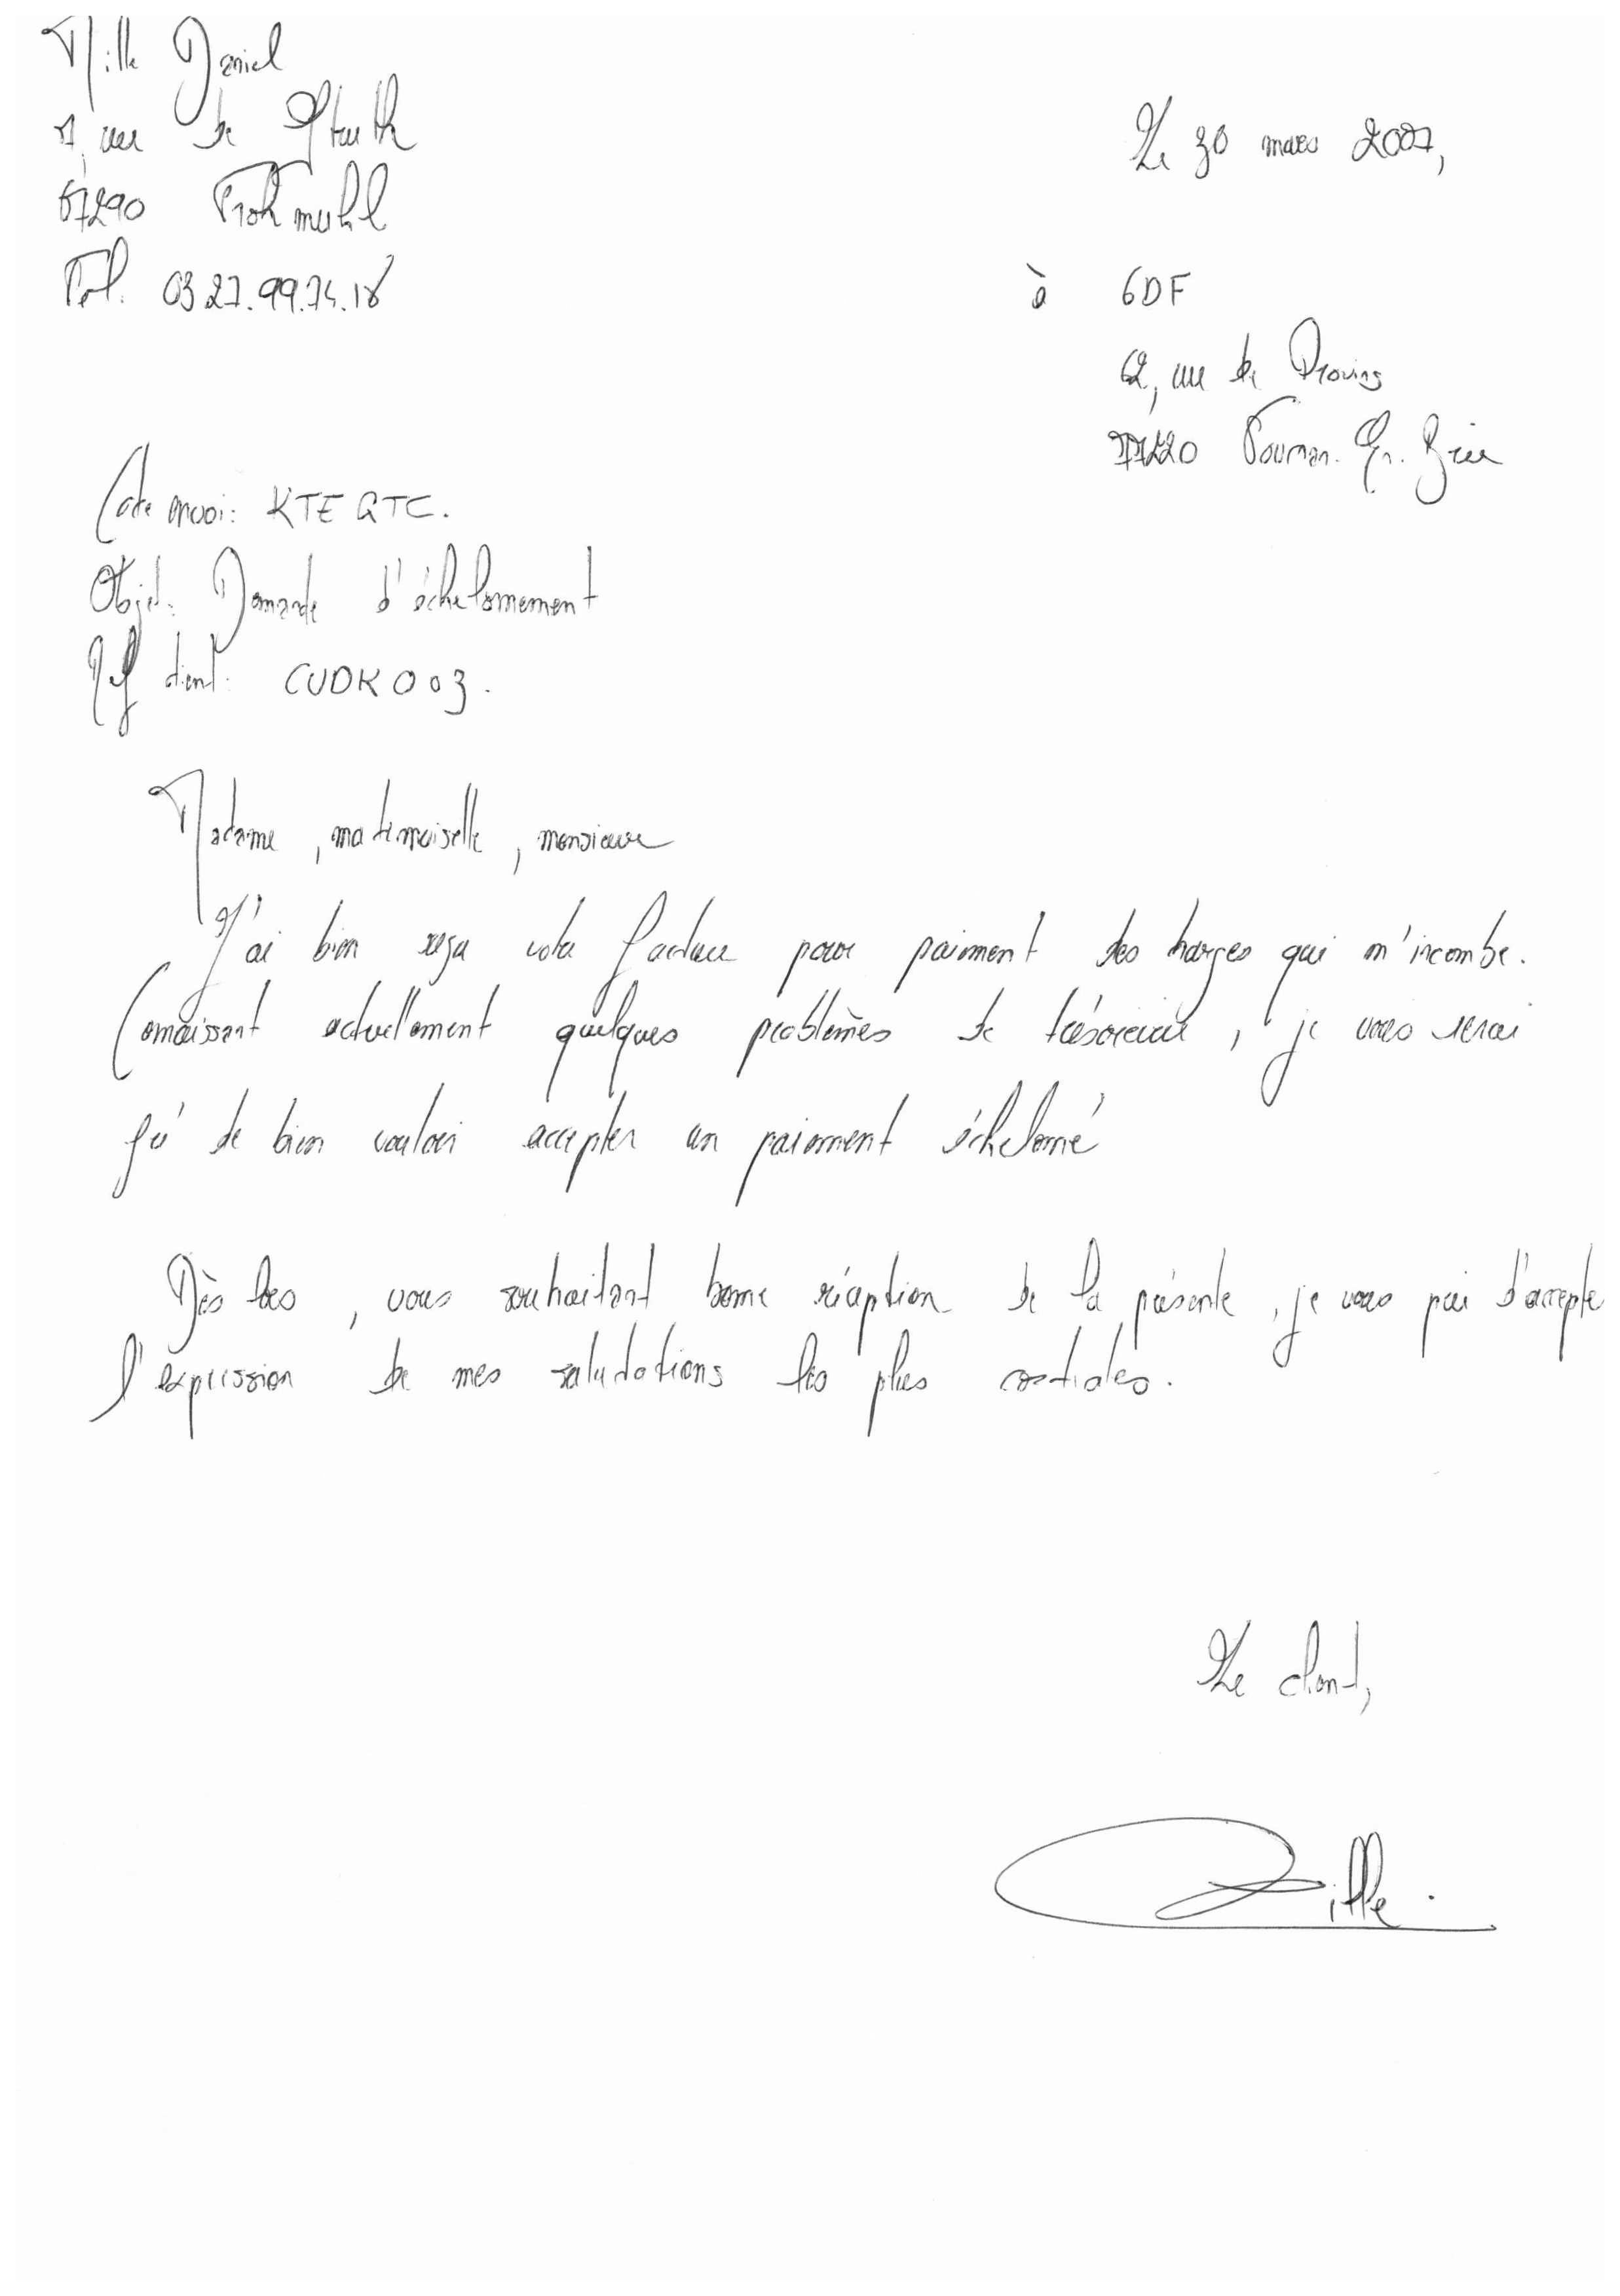 Mille Daniel
7, rue de
67290 Frohmuhl
Tel. 03 27.99.74.18
Le 30 mars 2007,
à GDF
62, rue de Provins
77220 Tournan. En. Brie
Code envoi: KTEQTC.
Objet: Demande d'échelonnement
Ref client: CUDK003.
Madame, mademoiselle, monsieur
J'ai bien reçu votre facture pour paiement des charges qui m'incombe.
Connaissant actuellement quelques problèmes de trésorerie, je vous serai
gré de bien vouloir accepter un paiement échelonné
Dès lors, vous souhaitant bonne réception de la présente, je vous prie d'accepter
l'expression de mes salutations les plus cordiales.
Le client,
Mille